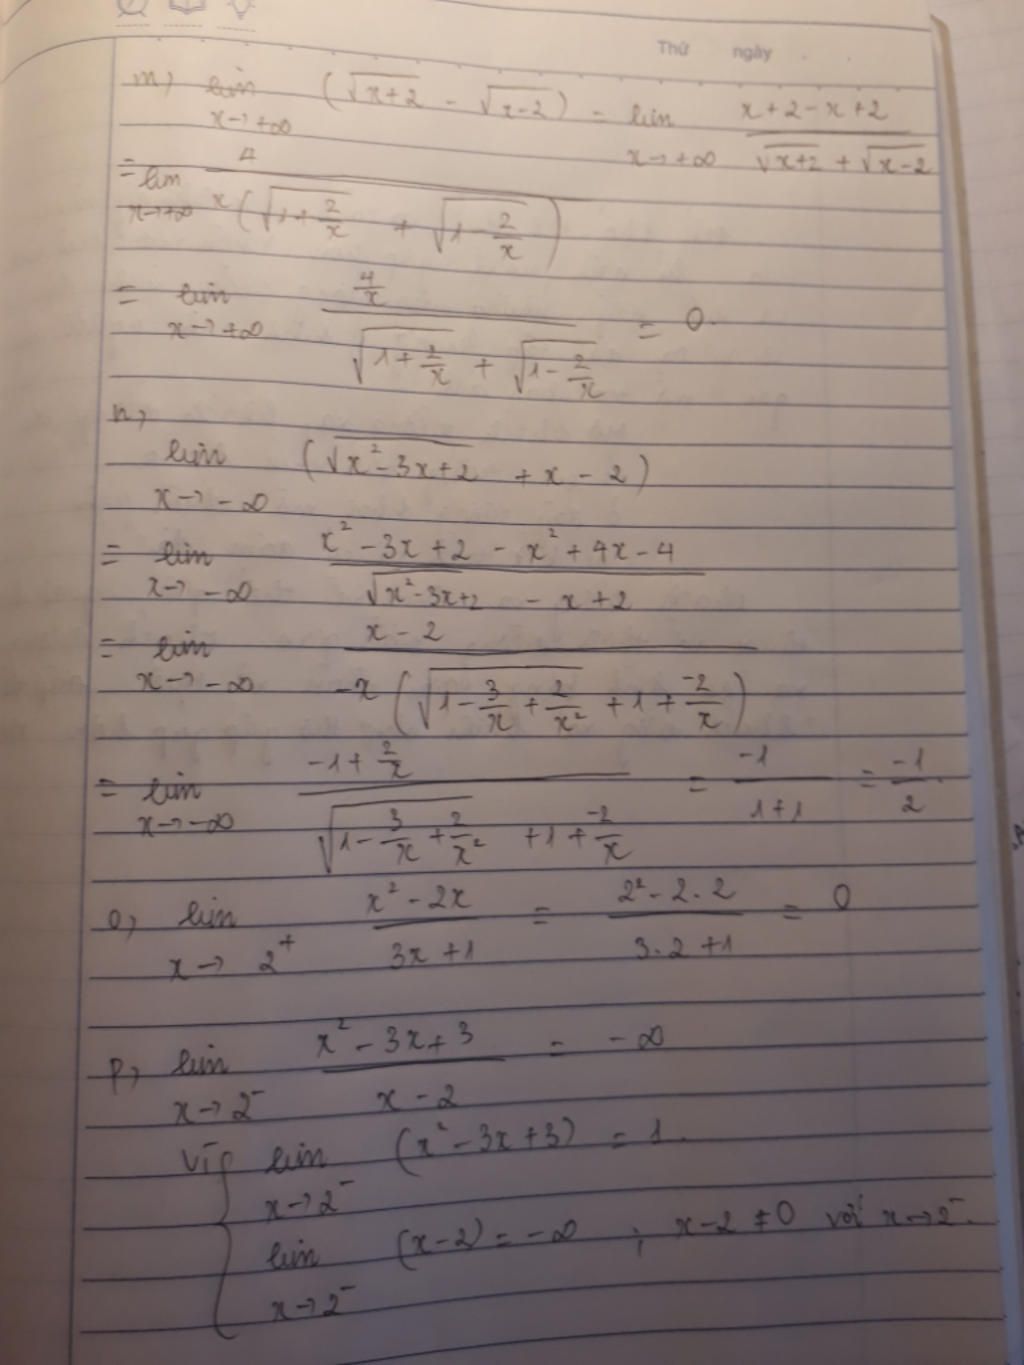 Thứ ngày
m, lim (√(x+2) - √(x-2)) = lim (x+2-x+2)/(√(x+2) + √(x-2))
x→+∞ x→+∞
= lim 4/(x(√(1+2/x) + √(1-2/x)))
x→+∞
= lim (4/x)/(√(1+2/x) + √(1-2/x)) = 0.
x→+∞
n,
lim (√(x²-3x+2) + x - 2)
x→-∞
= lim (x²-3x+2-x²+4x-4)/(√(x²-3x+2) - x+2)
x→-∞
= lim (x-2)/(-x(√(1-3/x+2/x²) + 1 + -2/x))
x→-∞
= lim (-1+2/x)/(√(1-3/x+2/x²) + 1 + -2/x) = -1/(1+1) = -1/2.
x→-∞
o, lim (x²-2x)/(3x+1) = (2²-2.2)/(3.2+1) = 0
x→2⁺
p, lim (x²-3x+3)/(x-2) = -∞
x→2⁻
Vì { lim (x²-3x+3) = 1.
x→2⁻
lim (x-2) = -∞ ; x-2≠0 với x→2⁻.
x→2⁻